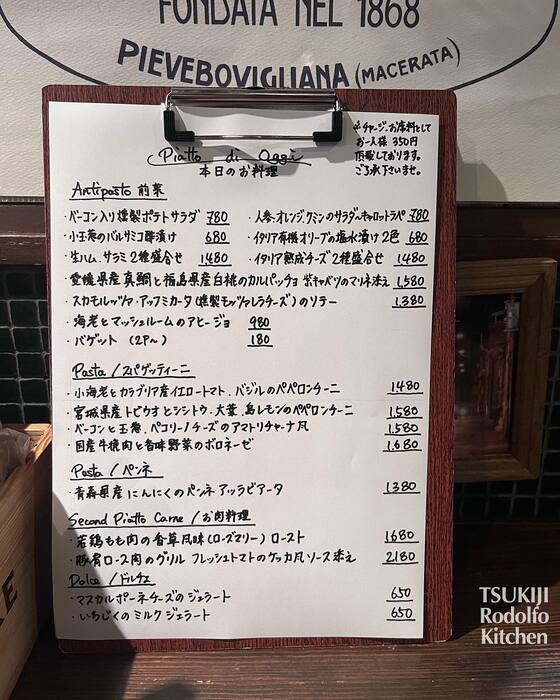 FONDATA NEL 1868
PIEVEBOVIGLIANA (MACERATA)
※チャージ.お席料として
お一人様 350円
頂戴しております。
ご了承下さいませ。
Piatto di Oggi
本日のお料理
Antipasto 前菜
・ベーコン入り燻製ポテトサラダ 780
・人参、オレンジ、クミンのサラダ〜キャロットラペ 780
・小玉葱のバルサミコ酢漬け 680
・イタリア有機オリーブの塩水漬け2色 680
・生ハム、サラミ2種盛合せ 1480
・イタリア熟成チーズ2種盛合せ 1480
・愛媛県産真鯛と福島県産白桃のカルパッチョ 紫キャベツのマリネ添え 1,580
・スカモルツァ・アッフミカータ(燻製モッツァレラチーズ)のソテー 1,380
・海老とマッシュルームのアヒージョ 980
・バゲット (2P〜) 180
Pasta / スパゲッティーニ
・小海老とカラブリア産イエロートマト、バジルのペペロンチーニ 1480
・宮城県産トビウオとシシトウ、大葉、島レモンのペペロンチーニ 1,580
・ベーコンと玉葱、ペコリーノチーズのアマトリチャーナ風 1,580
・国産牛挽肉と香味野菜のボロネーゼ 1,680
Pasta / ペンネ
・青森県産にんにくのペンネ アッラビアータ 1380
Second Piatto Carne / お肉料理
・若鶏もも肉の香草風味(ローズマリー) ロースト 1680
・豚肩ロース肉のグリル フレッシュトマトのケッカ風ソース添え 2180
Dolce / ドルチェ
・マスカルポーネチーズのジェラート 650
・いちじくのミルクジェラート 650
TSUKIJI
Rodolfo
Kitchen